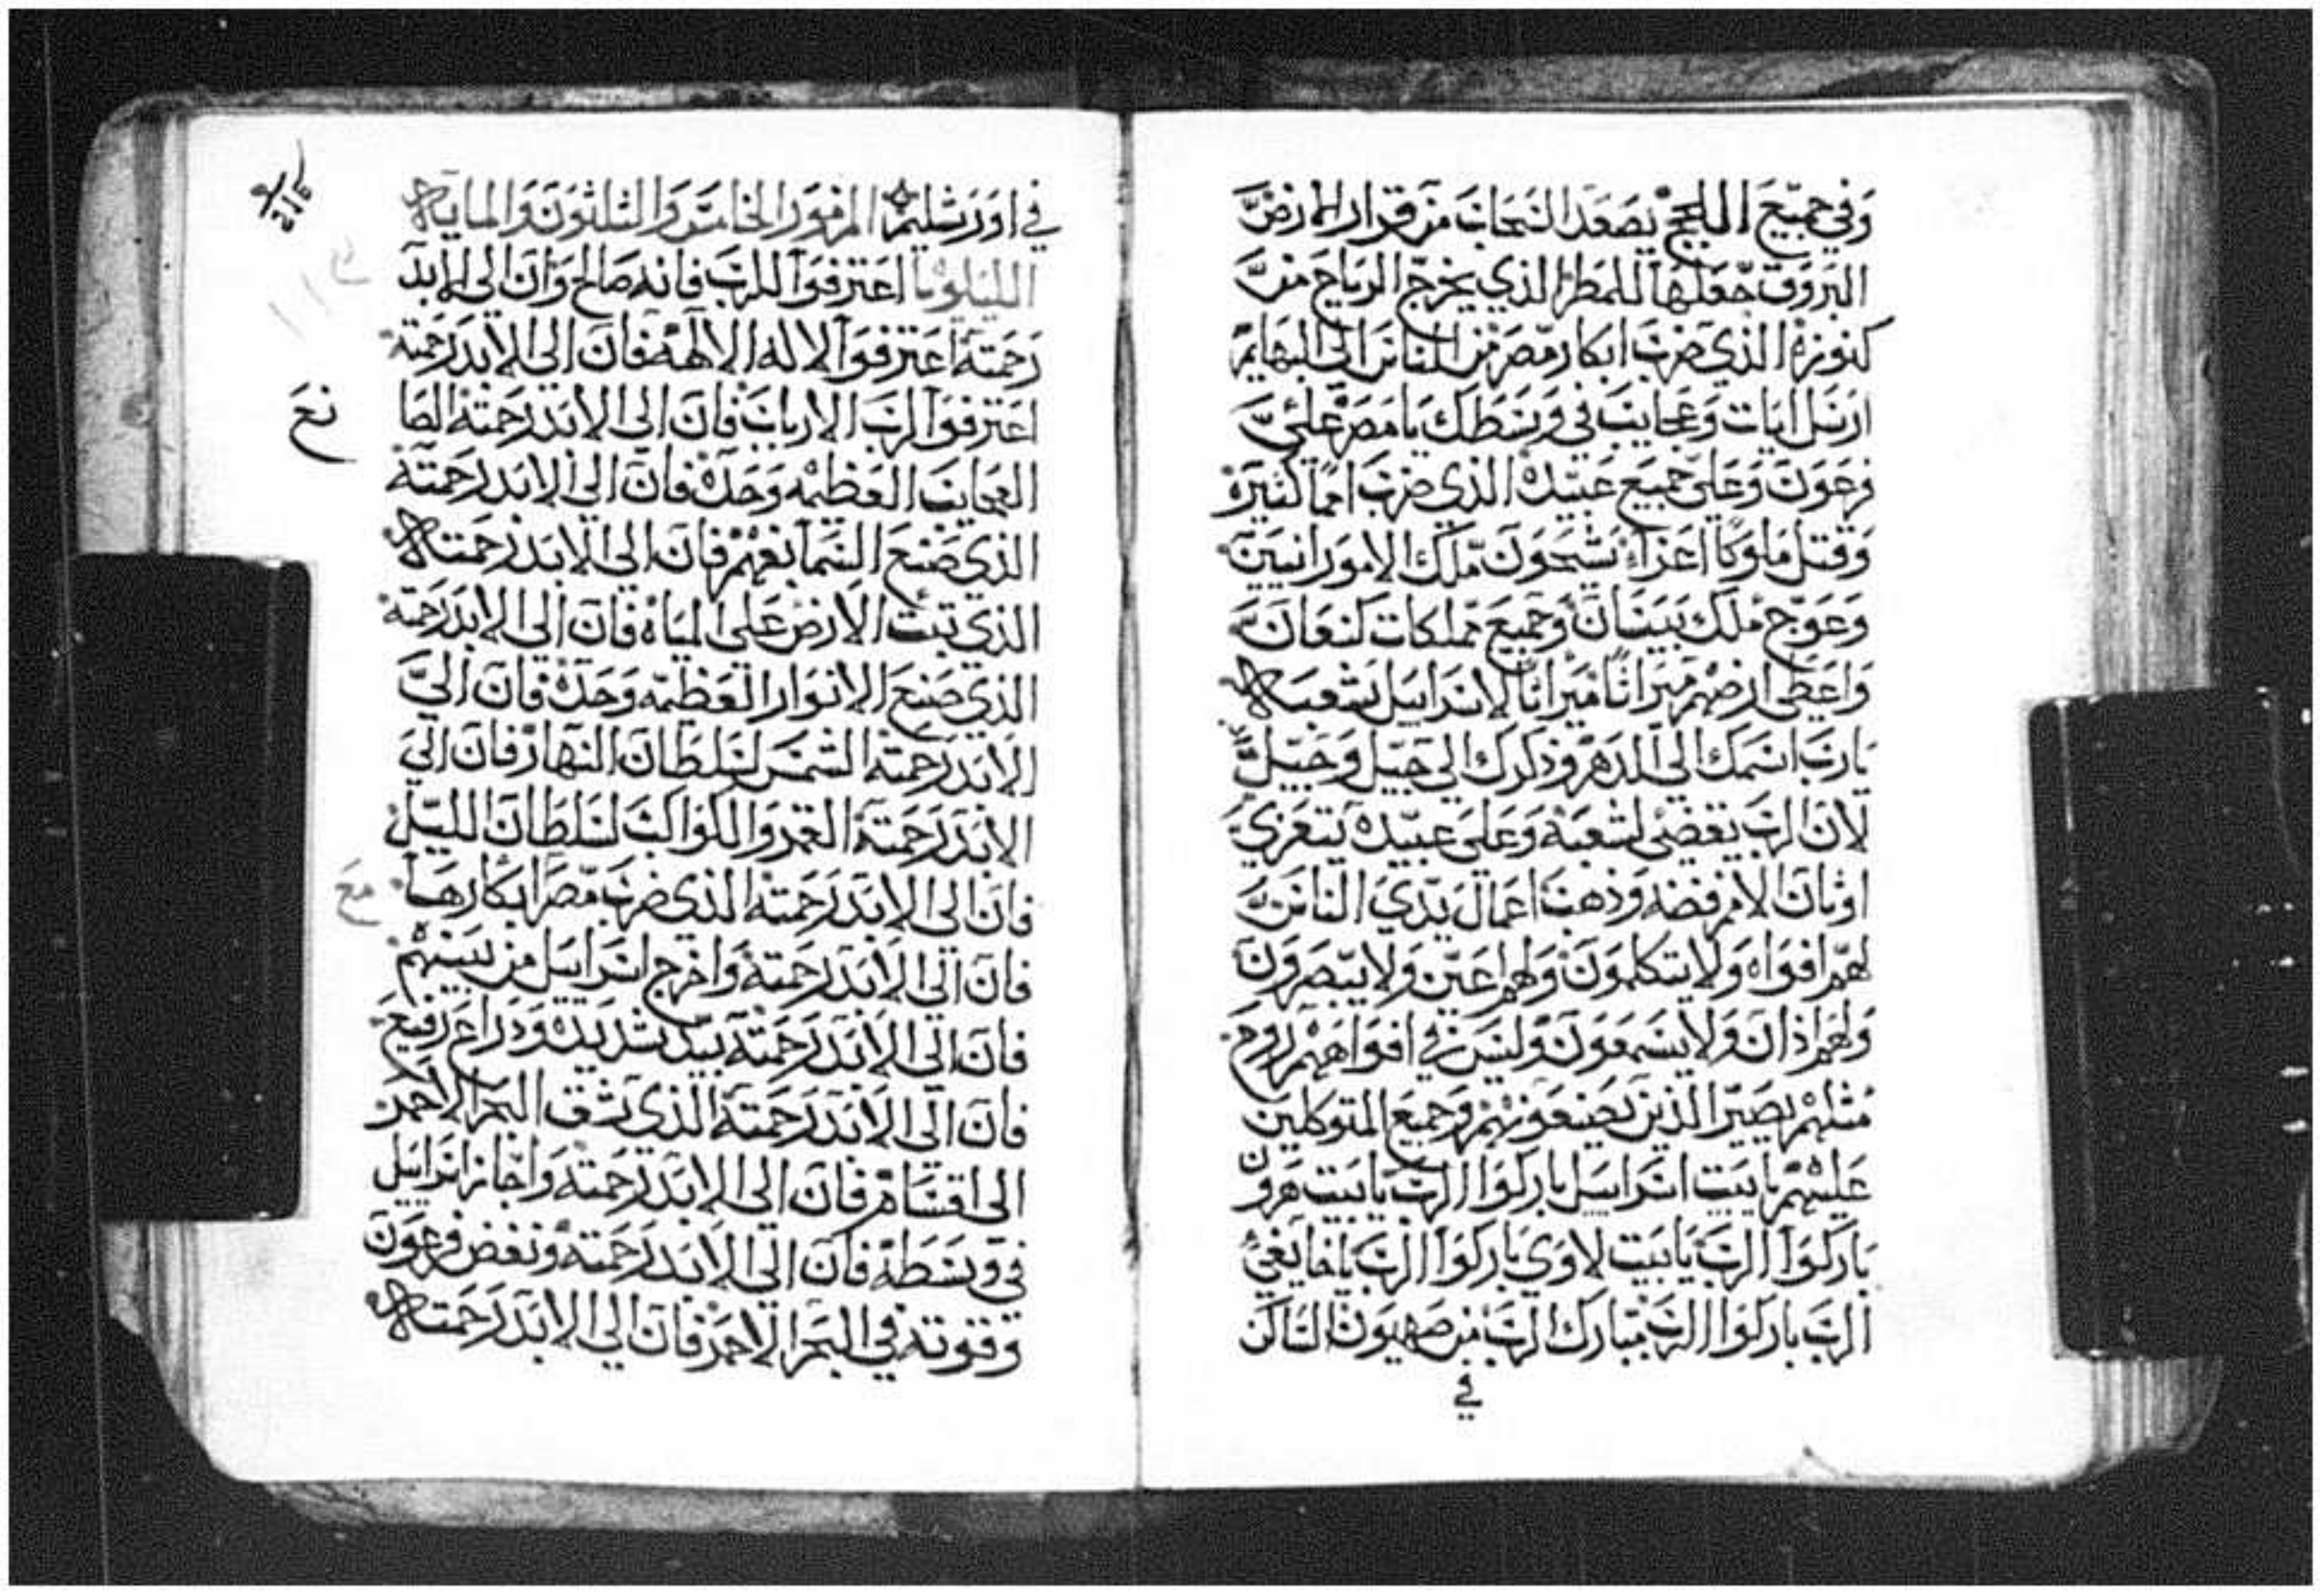 وفي جميع اللجج يصعد السحاب من قرار الارض
البروق جعلها للمطر الذي يخرج الرياح من
كنوزه الذي ضرب ابكار مصر من الناس الى البهايم
ارسل ايات وعجايب في وسطك يا مصر علي
فرعون وعلي جميع عبيده الذي ضرب امما كثيره
وقتل ملوكا اعزاء سيحون ملك الامورانيين
وعوج ملك بيسان وجميع مملكات كنعان
واعطى ارضهم ميراثا ميراثا لاسراييل شعبه
يا رب اسمك الى الدهر وذكرك الى جيل وجيل
لان الرب يقضى لشعبه وعلى عبيده يتعزي
اوثان الامم فضه وذهب اعمال يدي الناس
لهم افواه ولا يتكلمون ولهم اعين ولا يبصرون
ولهم اذان ولا يسمعون وليس في افواههم روح
مثلهم يصير الذين يصنعونهم وجميع المتوكلين
عليهم يا بيت اسراييل باركوا الرب يا بيت هرون
باركوا الرب يا بيت لاوي باركوا الرب يا خايفي
الرب باركوا الرب مبارك الرب من صهيون الساكن
في
في اورشليم المزمور الخامس والثلثون والمايه
الليلويا اعترفوا للرب فانه صالح وان الى الابد
رحمته اعترفوا لاله الالهه فان الى الابد رحمته
اعترفوا لرب الارباب فان الى الابد رحمته الصا
العجايب العظيمه وحده فان الى الابد رحمته
الذي صنع السما بفهم فان الي الابد رحمته
الذي ثبت الارض على المياه فان الى الابد رحمته
الذي صنع الانوار العظيمه وحده فان الي
الابد رحمته الشمس لسلطان النهار فان الي
الابد رحمته القمر والكواكب لسلطان الليل
فان الي الابد رحمته الذي ضرب مصر ابكارها
فان الي الابد رحمته واخرج اسراييل من بينهم
فان الى الابد رحمته بيد شديده وذراع رفيع
فان الى الابد رحمته الذي شق البحر الاحمر
الى اقسام فان الى الابد رحمته واجاز اسراييل
في وسطه فان الي الابد رحمته ونفض فرعون
وقوته في البحر الاحمر فان الي الابد رحمته